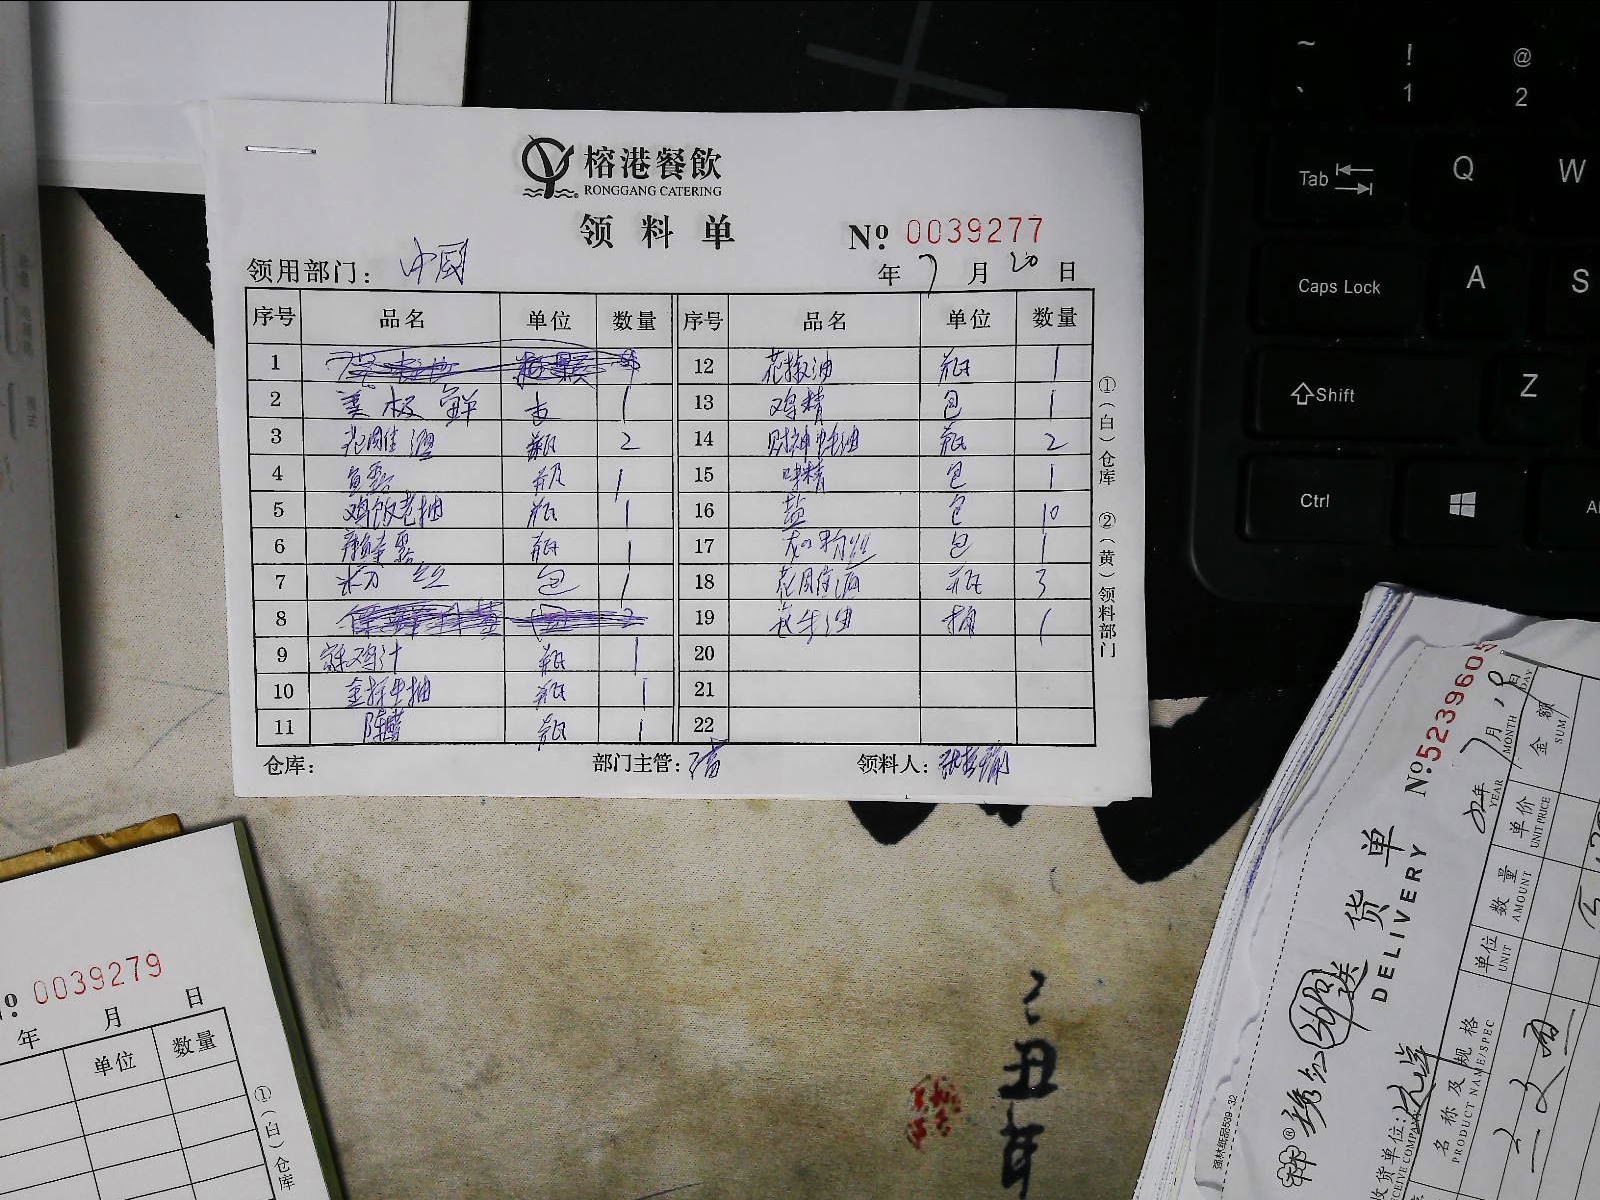 榕港餐飲
RONGGANG CATERING
领料单
No. 0039277
领用部门： 中国
年 7 月 20 日
序号 品名 单位 数量 序号 品名 单位 数量
1 12 花椒油 瓶 1
2 美极鲜 支 1 13 鸡精 包 1
3 花雕酒 瓶 2 14 财神蚝油 瓶 2
4 鱼露 瓶 1 15 味精 包 1
5 鸡饭老抽 瓶 1 16 盐 包 10
6 瓶 1 17 龙口粉丝 包 1
7 粉丝 包 1 18 花雕酒 瓶 3
8 19 油 桶 1
9 鸡汁 瓶 1 20
10 金标生抽 瓶 1 21
11 陈醋 瓶 1 22
仓库： 部门主管： 领料人：
①（白）仓库 ②（黄）领料部门
~ ! @
` 1 2
Tab Q W
Caps Lock A S
Shift Z
Ctrl
No 0039279
年 月 日
单位 数量
①（白）仓库
丑年
No. 5239605
年 7 月 日
YEAR MONTH DAY
送货单
DELIVERY
收货单位：
名称及规格 单位 数量 单价 金额
PRODUCT NAME/SPEC UNIT AMOUNT UNIT PRICE SUM
强林纸品539-32